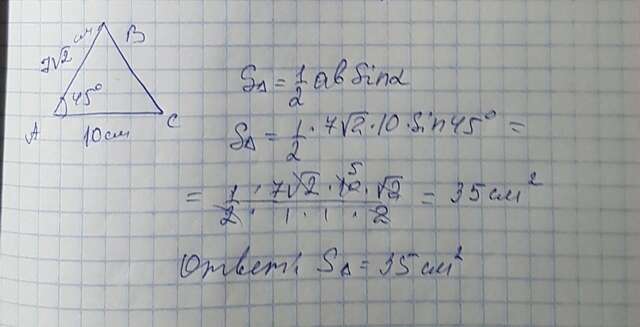 7√2 см
B
45°
A
C
10см
S△ = 1/2 ab Sinα
S△ = 1/2 · 7√2 · 10 · Sin45° =
= 1/2 · 7√2/1 · 10/1 · √2/2 = 35 см²
5
Ответ: S△ = 35 см²